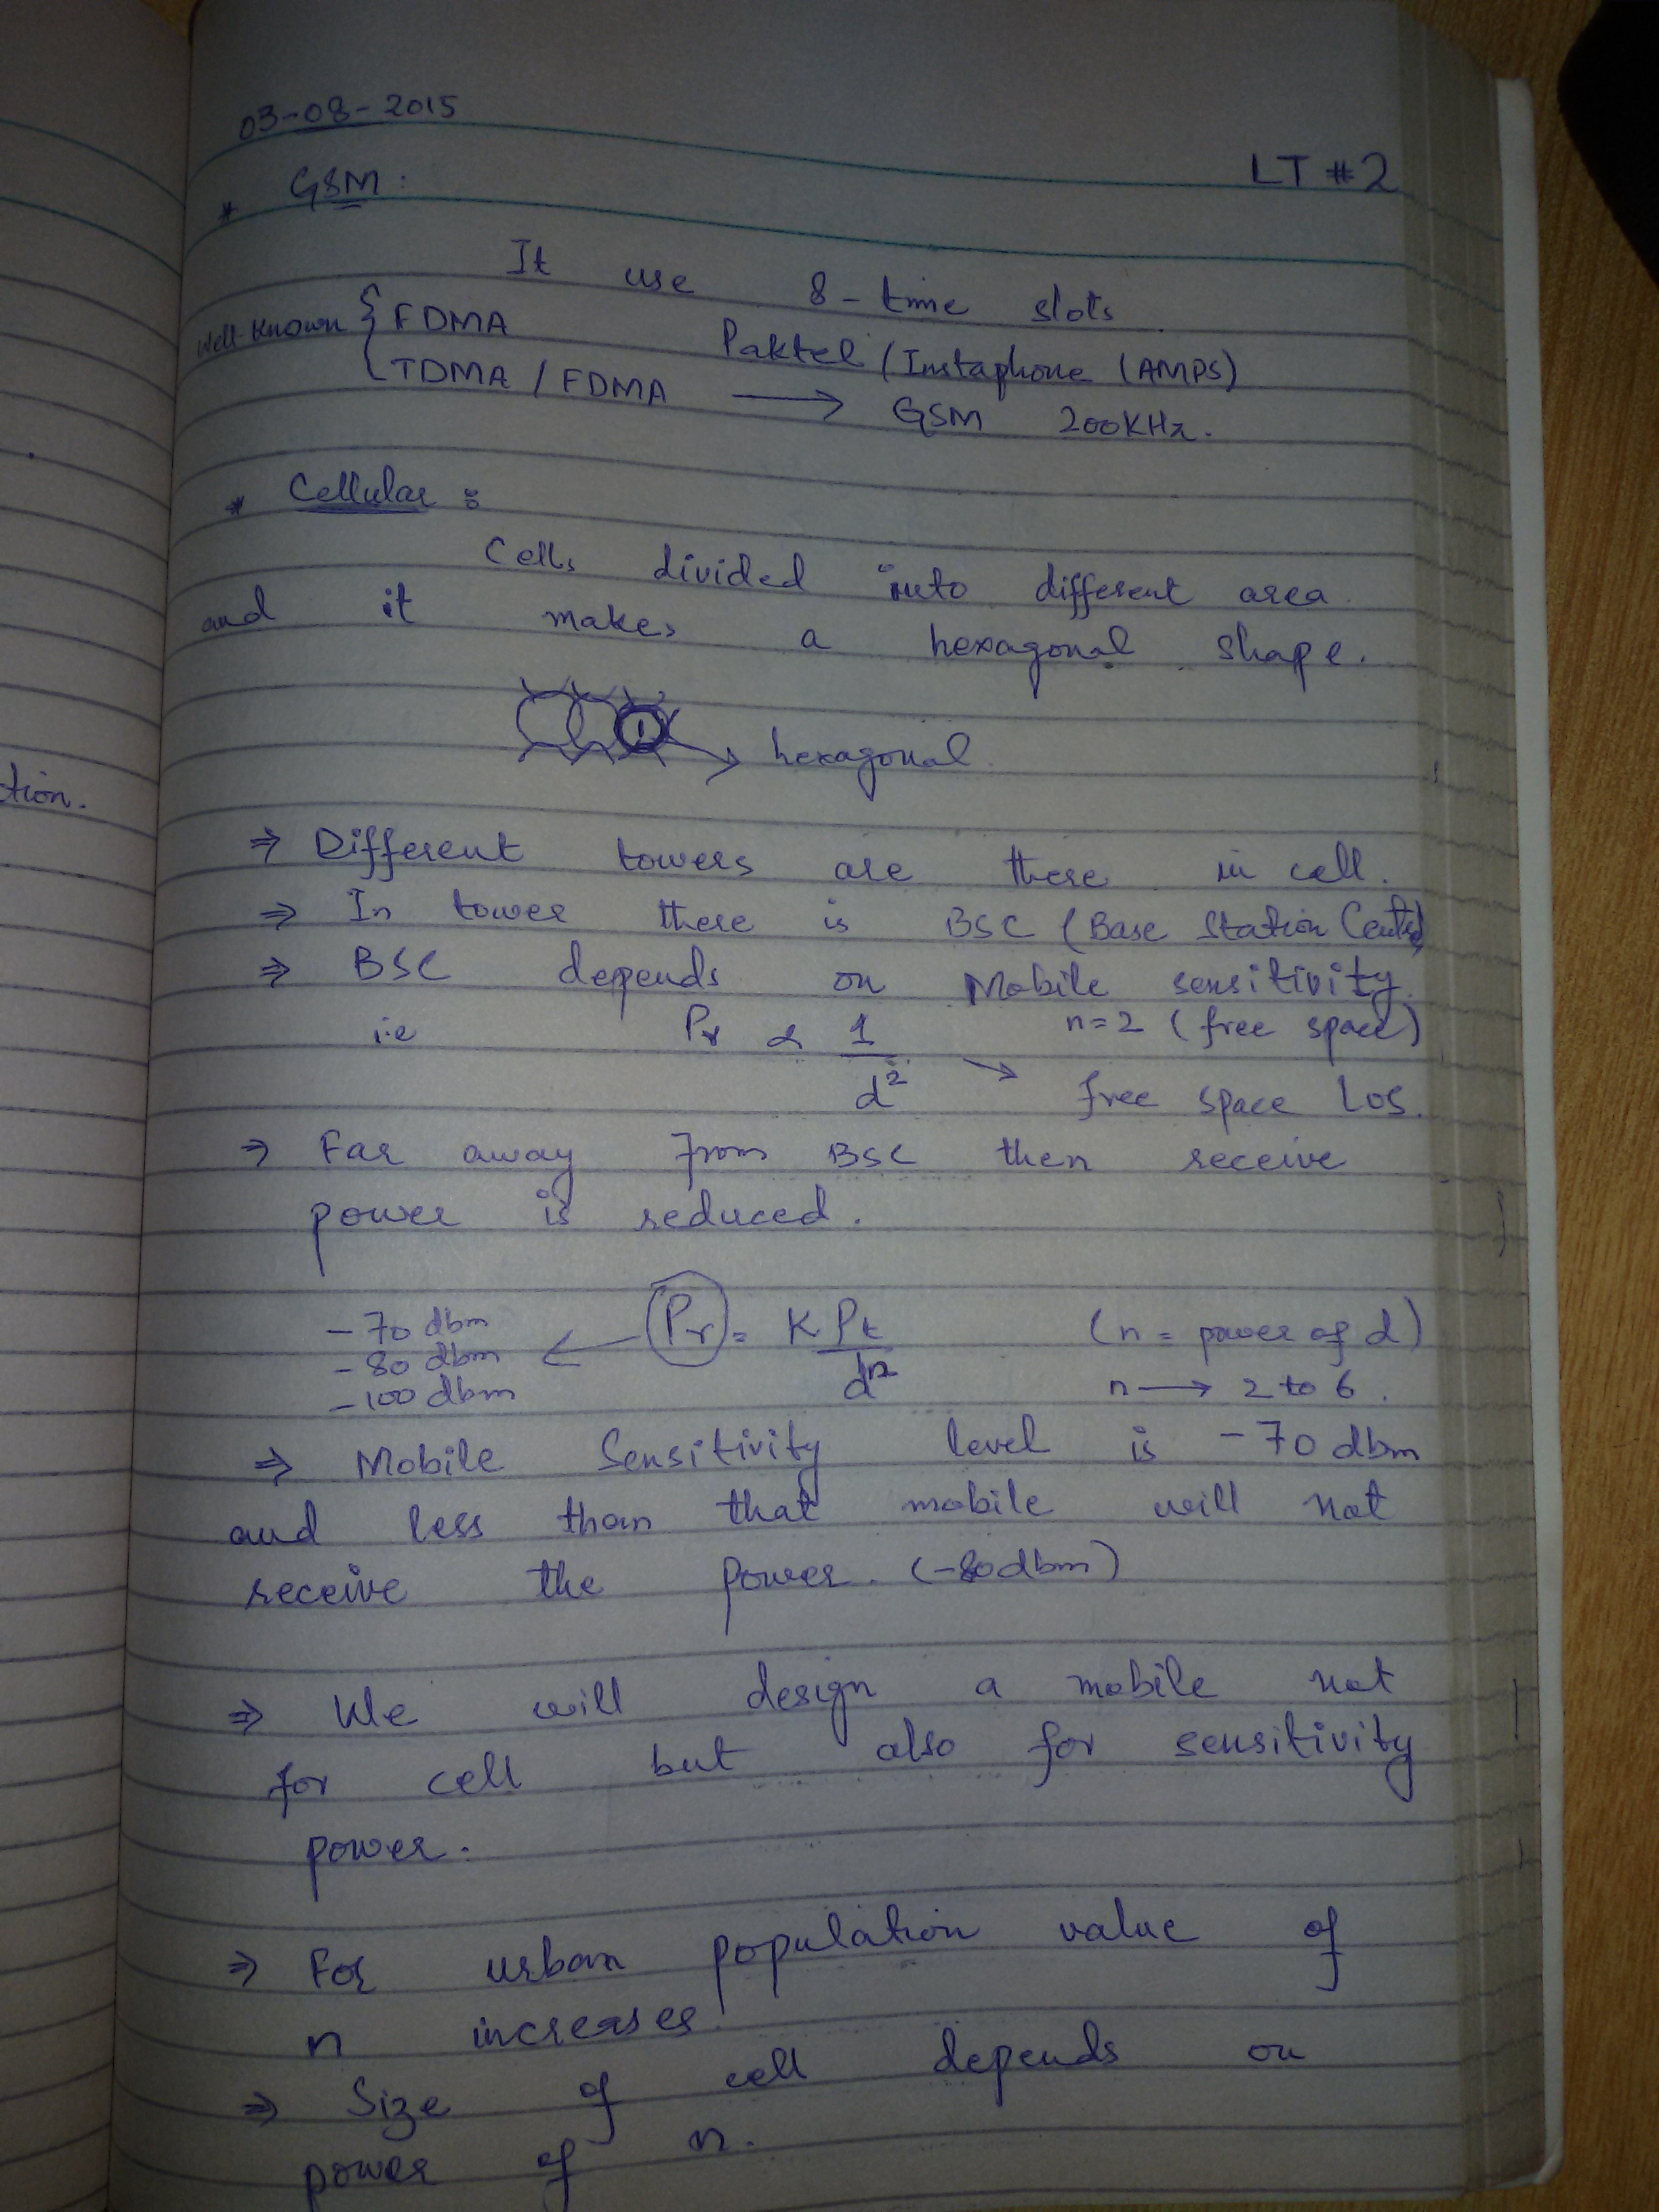 03-08-2015
LT #2
* GSM :
It use 8-time slots
Well-Known { FDMA Paktel / Instaphone (AMPS)
TDMA / FDMA → GSM 200KHz.
* Cellular :
Cells divided into different area
and it makes a hexagonal shape.
1 → hexagonal
tion.
⇒ Different towers are there in cell.
⇒ In tower there is BSC (Base Station
⇒ BSC depends on Mobile sensitivity
i.e Pr α 1/d² n=2 (free space)
→ free space LOS.
⇒ Far away from BSC then receive
power is reduced.
-70 dbm
-80 dbm
-100 dbm
← Pr = K Pt/dⁿ (n = power of d)
n → 2 to 6.
⇒ Mobile Sensitivity level is -70 dbm
and less than that mobile will not
receive the power. (-80dbm)
⇒ We will design a mobile not
for cell but also for sensitivity
power.
⇒ For urban population value of
n increases.
⇒ Size of cell depends on
power of n.